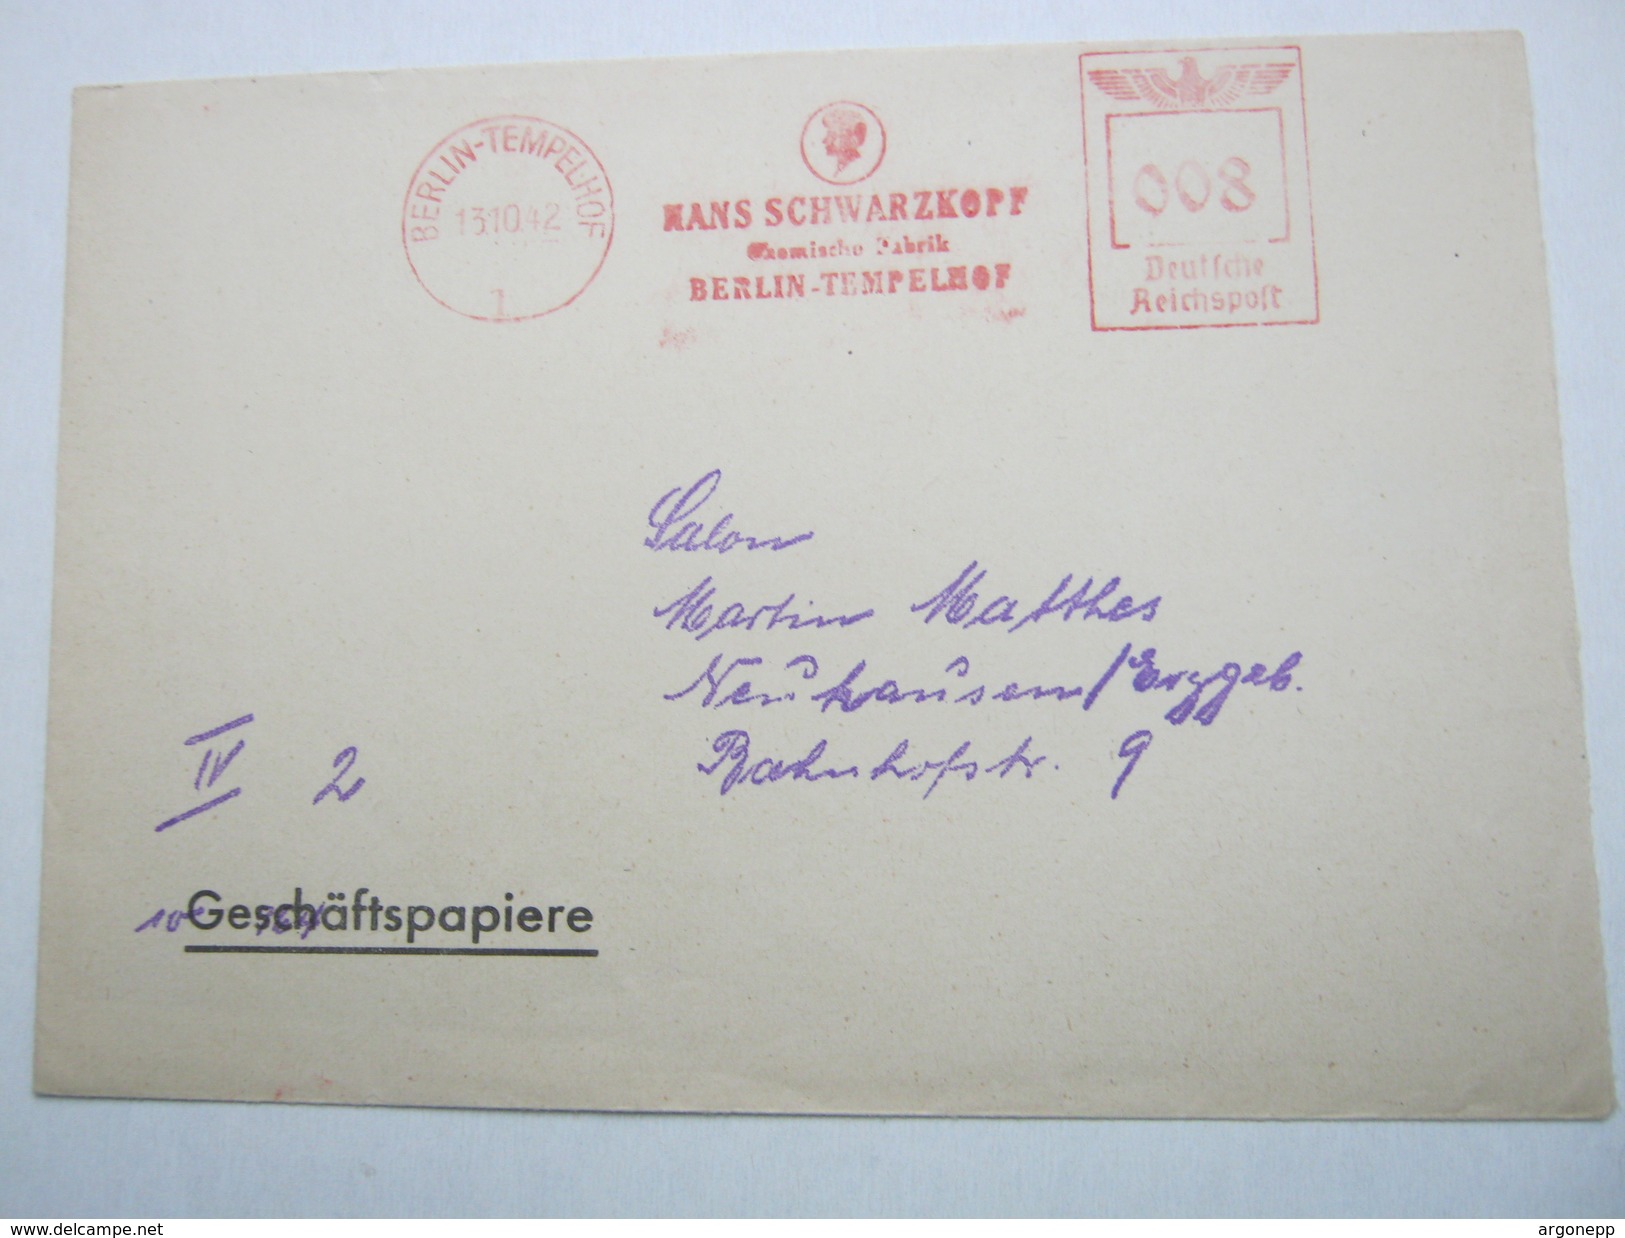 BERLIN-TEMPELHOF
13.10.42
1
HANS SCHWARZKOPF
Chemische Fabrik
BERLIN-TEMPELHOF
008
Deutsche
Reichspost
Salon
Martin Matthes
Neuhausen/Erzgeb.
Bahnhofstr. 9
IV 2
Geschäftspapiere
www.delcampe.net
argonepp